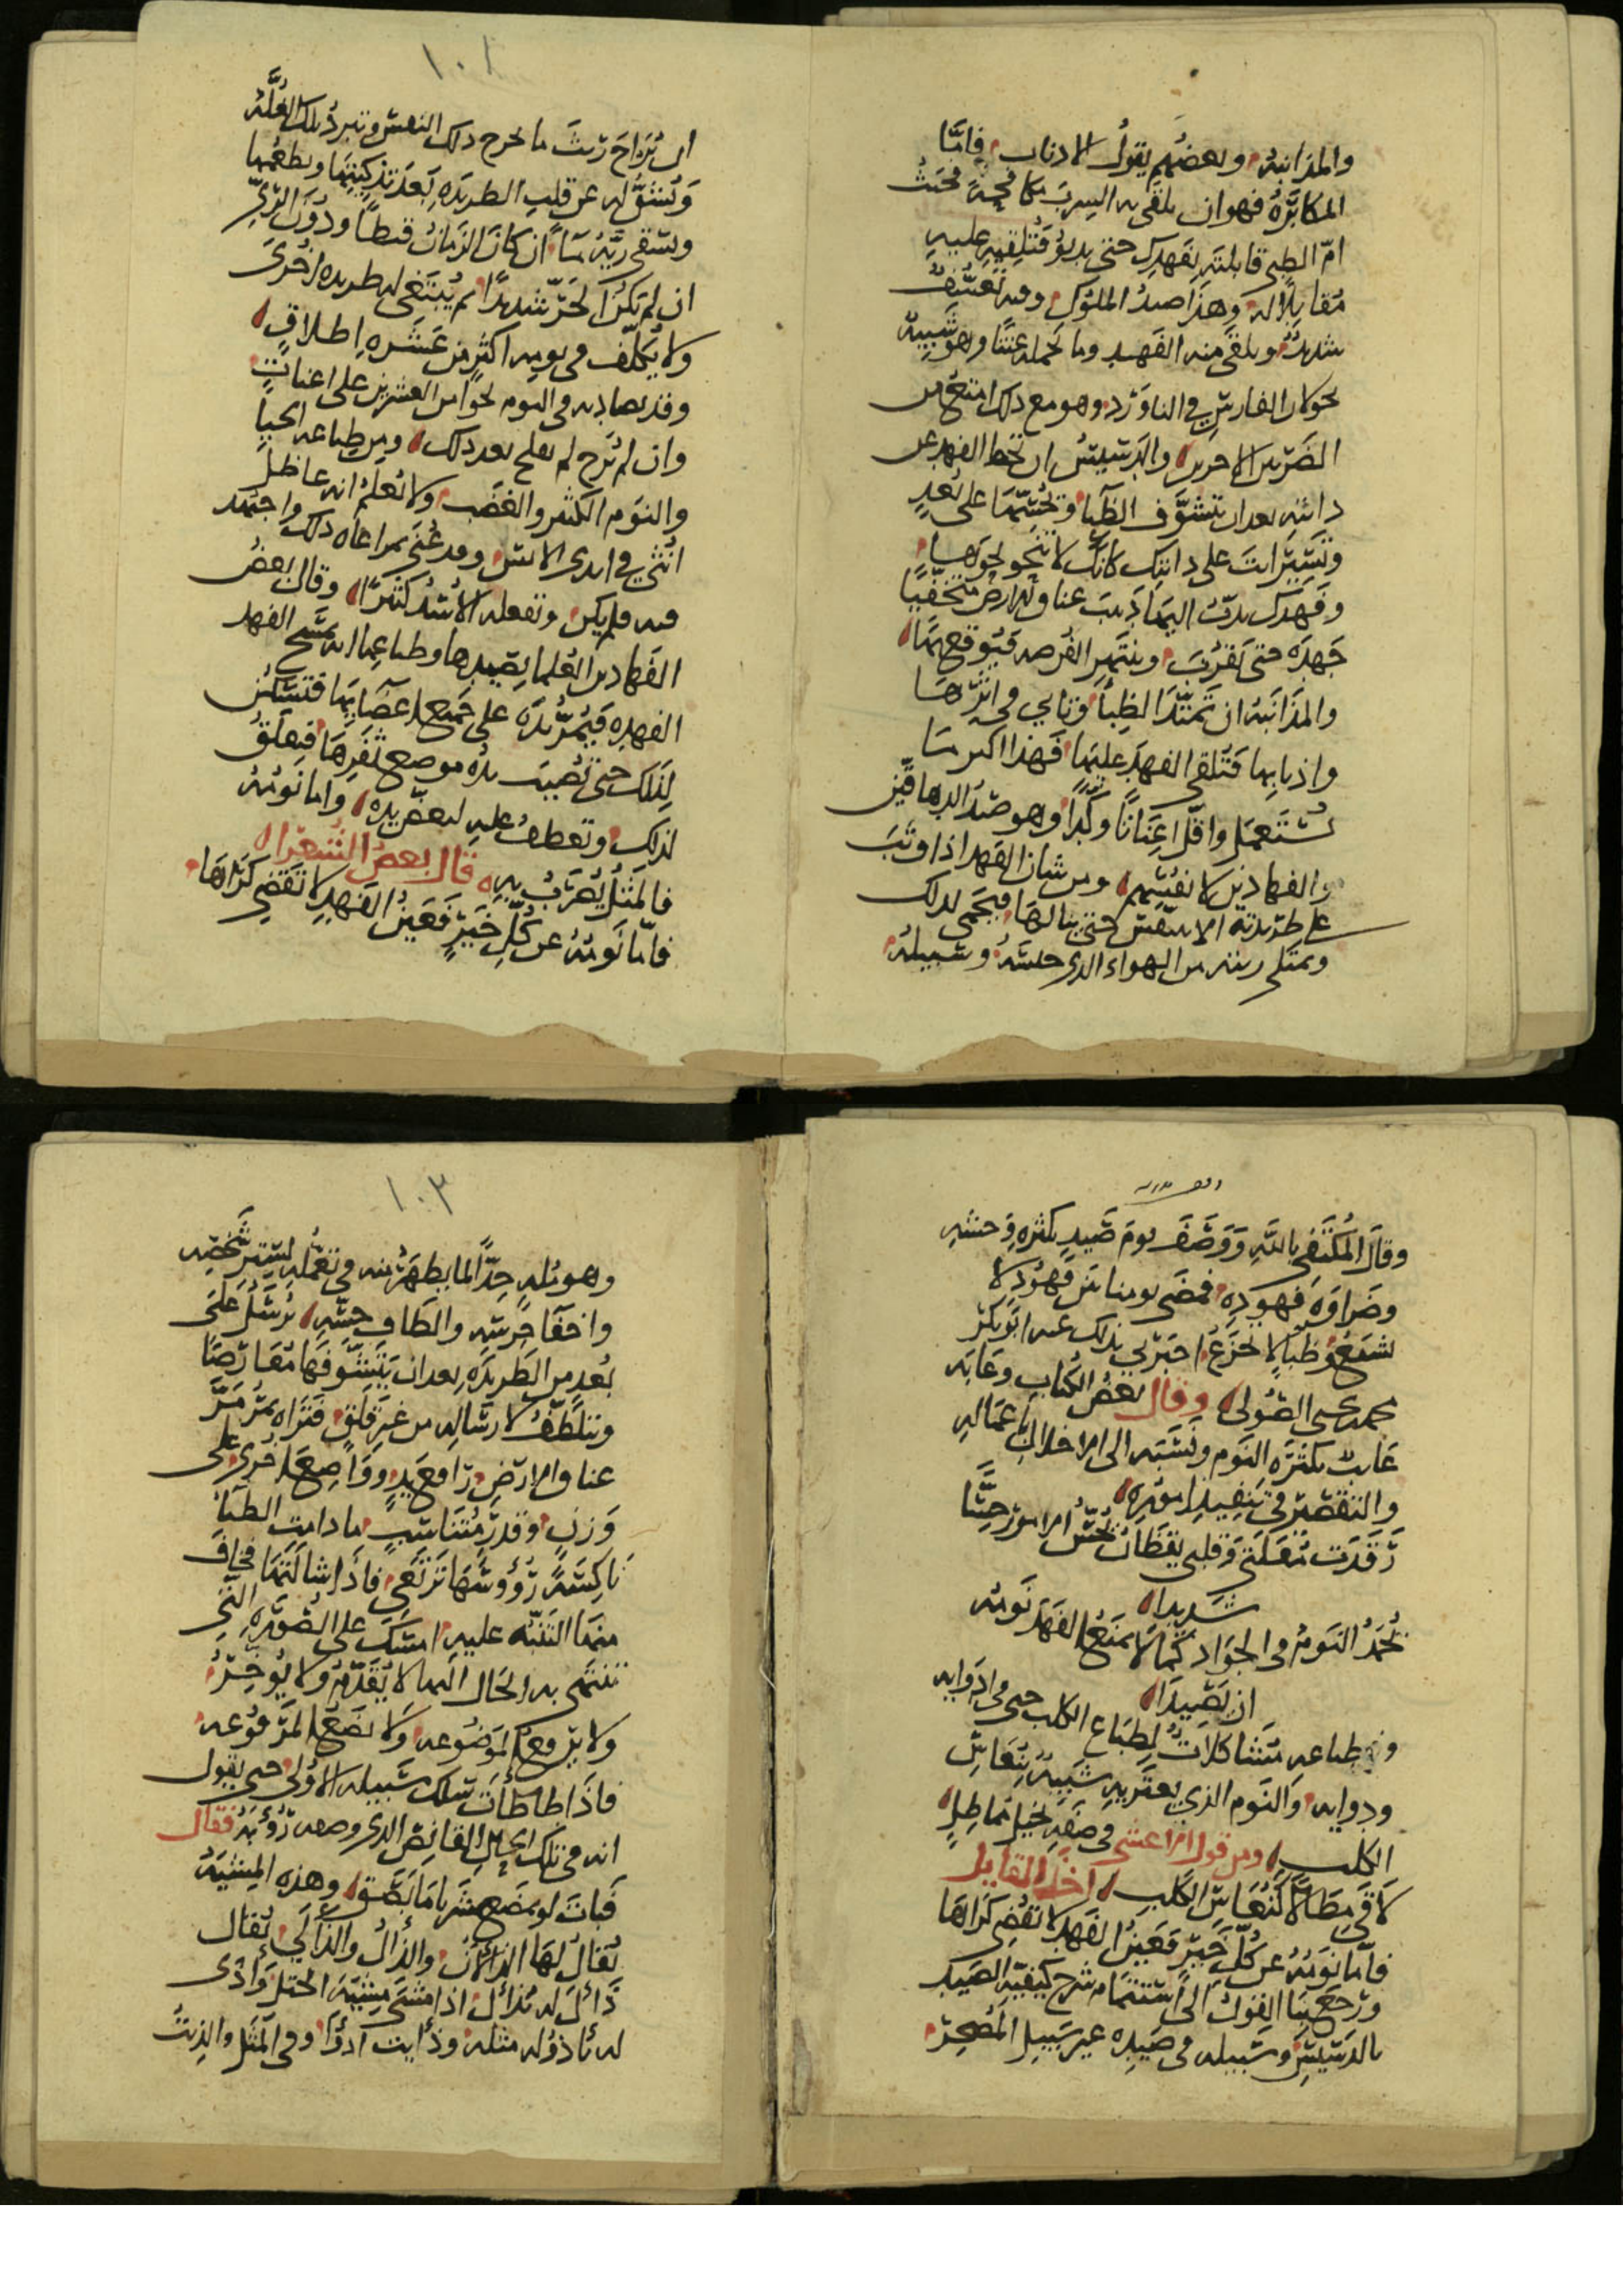 والمذانبة وبعضهم يقول الاذناب فامّا
المكابرة فهو ان يلقى به السرب مكافحةً فحيث
امّ الظبي قابلته بفهدك حتى يدنو فتلقيه عليه
مقابلًا له وهذا صيد الملوك وفيه تعسّف
شديد ويلقى منه الفهد وما يحمله عنتا وهو شبيه
بجولان الفارس في الناورد وهو مع ذلك امتع من
الضربين الاخرين والدسيس ان تحط الفهد عن
دابته بعد ان تتشوّف الظبا وتجشّمها على بُعدٍ
وتسير انت على دابتك كانك لا تنحو نحوها
وفهدك يدبّ اليها دبيب عناق الارض متخفيا
جهده حتى يقرب وينتهز الفرصه فيوقع بها
والمذانبة ان تمتدّ الظبا وتاتي في اثرها
واذنابها فتلقى الفهد عليها فهذا اكبر ما
يستعمل واقلّ اعناتا وكدًا وهو صيد الدهاقين
والفهادين لانفسهم ومن شان الفهد اذا وثب
على طريدته الا يتنفس حتى ينالها فيحمى لذلك
وتمتلى رئته من الهواء الذى حبسه وسبيله
١٠٢
ان يُراح ريث ما يخرج ذلك النفس وتبرد تلك الغُلّة
وتُشقّ له عن قلب الطريده بعد تذكيتها ويطعمها
ويسقى ريّه ما ان كان الزمان قيظًا ودون الريّ
ان لم يكن الحرّ شديدًا ثم يُبتغى له طريده اخرى
ولا يكلّف في يومه اكثر من عشره اطلاقٍ
وقد يصاد به في اليوم نحوا من العشرين على اعناتٍ
وان لم يُرح لم يفلح بعد ذلك ومن طباعه الحيا
والنوم الكثير والغضب ولا نعلم انه عاظل
انثى في ايدى الانس وقد عُنى بمراعاه ذلك واجتهد
فيه فلم يكن وتفعله الاُسْد كثيرًا وقال بعض
الفهادين العلما بصيدها وطباعها انه يمسح الفهد
الفهده فيُمرّ يده على جميع اعضايها فتسكن
لذلك حتى تصيب يده موضع ثفرها فيعلق
لذلك وتعطف عليه لبعض يده واما نومه
فالمثل يُضرب به قال بعض الشعراء
فامّا نومه عن كلّ خيرٍ فعين الفهد لا تقضي كراها
وقال المكتفي بالله ووصف يوم صيد بكثره وحشه
وضراوه فهوده فمضى يومنا بين فهود لا
تشبع وظبا لا تجزع اخبرني بذلك عنه ابو بكر
محمد بن يحيى الصولى وقال بعض الكتاب وعابه
عايب بكثره النوم ونسبه الى الاخلال باعماله
والتقصير في تنفيذ اموره
رقدت مقلتي وقلبي يقظان يُحسّ الامور حسًّا
شديدا
يُحمد النوم في الجواد كما لا يمنع الفهد نومه
ان يصيدا
وفي طباعه متشاكلات لطباع الكلب حتى في ادوايه
ودوايه والنوم الذي يعتريه شبيه بنعاس
الكلب ومن قول الاعشى في صفه بخيل مماطل
لاقى مِطالًا كنعاس الكلب اخذ القايل
فامّا نومه عن كلّ خيرٍ فعين الفهد لا تقضي كراها
ورجع بنا القول الى استتمام شرح كيفيّه الصيد
بالدسيس وسبيله في صيده غير سبيل المصحِر
١٠٣
وهو مُلهٍ جدًّا لما يظهر منه في تعمّله لستر شخصه
واخفا جرسه والطاف حسّه يُرسَل على
بُعد من الطريده بعد ان يتشوفها مُعارضًا
ويتلطّف لارساله من غير قلق فتراه يمرّ مَرّ
عناق الارض رافع يدٍ وواضع اخرى على
وزنٍ وقدرٍ متناسبٍ ما دامت الظبا
ناكسةً رؤوسها ترتعى فاذا شالتها فخاف
منها التنبّه عليه امسك على الصوره التي
تنتهي به الحال اليها لا يقدّم ولا يؤخّر
ولا يرفع الموضوعه ولا يضع المرفوعه
فاذا طاطأت سلك سبيله الاولى حتى يقول
انه في تلك الحال القانص الذي وصفه رؤبة فقال
فبات لو يمضغ شريا ما بصق وهذه المِشية
يُقال لها الذألان والذأل والذألي يُقال
ذَأل له يذأل اذا مشى مِشية الختل واَدَى
له يأدو له مثله ودأيت ادوًا وفي المثل والذيب